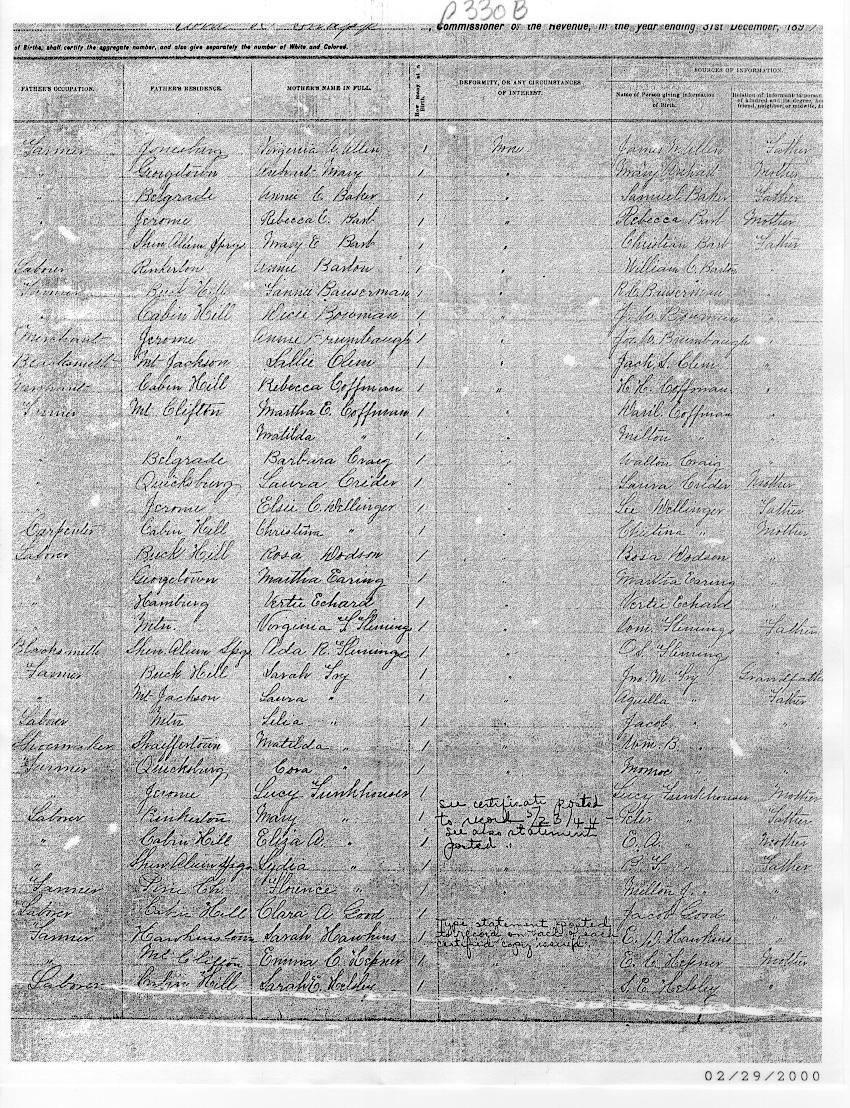 P330B
Commissioner of the Revenue, in the year ending 31st December, 189
of Births, shall certify the aggregate number, and also give separately the number of White and Colored.
SOURCES OF INFORMATION.
FATHER'S OCCUPATION. FATHER'S RESIDENCE. MOTHER'S NAME IN FULL. How many at a Birth. DEFORMITY, OR ANY CIRCUMSTANCES OF INTEREST. Name of Person giving information of Birth. Relation of informant
of kindred and its degree,
friend, neighbor, or midwife, &
Farmer Jonesburg Virginia Allen 1 None James Allen Father
" Georgetown Mary 1 " Mary Mother
" Belgrade Annie C. Baker 1 " Samuel Baker Father
" Jerome Rebecca C. Barb 1 " Rebecca Barb Mother
Shen Alum Spgs Mary E Barb 1 " Christian Barb Father
Laborer Pinkerton Annie Barton 1 " William C. Barton "
Farmer Buck Hill Fannie Bauserman 1 " R.C. Bauserman "
" Cabin Hill Dicie Bowman 1 " Bowman "
Merchant Jerome Annie Brumbaugh 1 " Brumbaugh "
Blacksmith Mt Jackson Sallie Clem 1 " Jack S. Clem "
Merchant Cabin Hill Rebecca Coffman 1 " H.H. Coffman "
Farmer Mt. Clifton Martha E. Coffman 1 " Coffman "
" " Matilda " 1 " Milton " "
" Belgrade Barbara Craig 1 " Walton Craig "
" Quicksburg Laura Crider 1 " Laura Crider Mother
" Jerome Elsie C. Dellinger 1 " Lee Dellinger Father
Carpenter Cabin Hill Christina " 1 " Christina " Mother
Laborer Buck Hill Rosa Dodson 1 " Rosa Dodson "
" Georgetown Martha Earing 1 " Martha Earing "
" Hamburg Vertie Echard 1 " Vertie Echard "
" Mtn. Virginia F. Flemings 1 " Wm. Flemings Father
Blacksmith Shen. Alum Spgs Ada R. Flemings 1 " C.S. Fleming "
Farmer Buck Hill Sarah Fry 1 " Jno. M. Fry Grandfather
" Mt Jackson Laura " 1 " Aquilla " Father
Laborer Mtn Lelia " 1 " Jacob " "
Shoemaker Shaeffertown Matilda " 1 " Wm. B. " "
Farmer Quicksburg Cora " 1 " Monroe " "
" Jerome Lucy Funkhouser 1 Lucy Funkhouser Mother
see certificate posted
Laborer Pinkerton Mary " 1 to record 5/23/44 - Peter " Father
see also statement
" Cabin Hill Eliza A. " 1 posted " E. A. " Mother
" Shen Alum Spgs Lydia " 1 " " Father
Farmer Pine Ch. Florence " 1 " " "
Laborer Cabin Hill Clara A Good 1 Jacob Good "
Type statement posted
Farmer Hawkinstown Sarah Hawkins 1 to record on back of each E. D. Hawkins "
certified copy issued.
" Mt Clifton Emma C. Hepner 1 " E. C. Hepner Mother
Laborer Cabin Hill Sarah E. Helsley 1 " S. E. Helsley "
02/29/2000